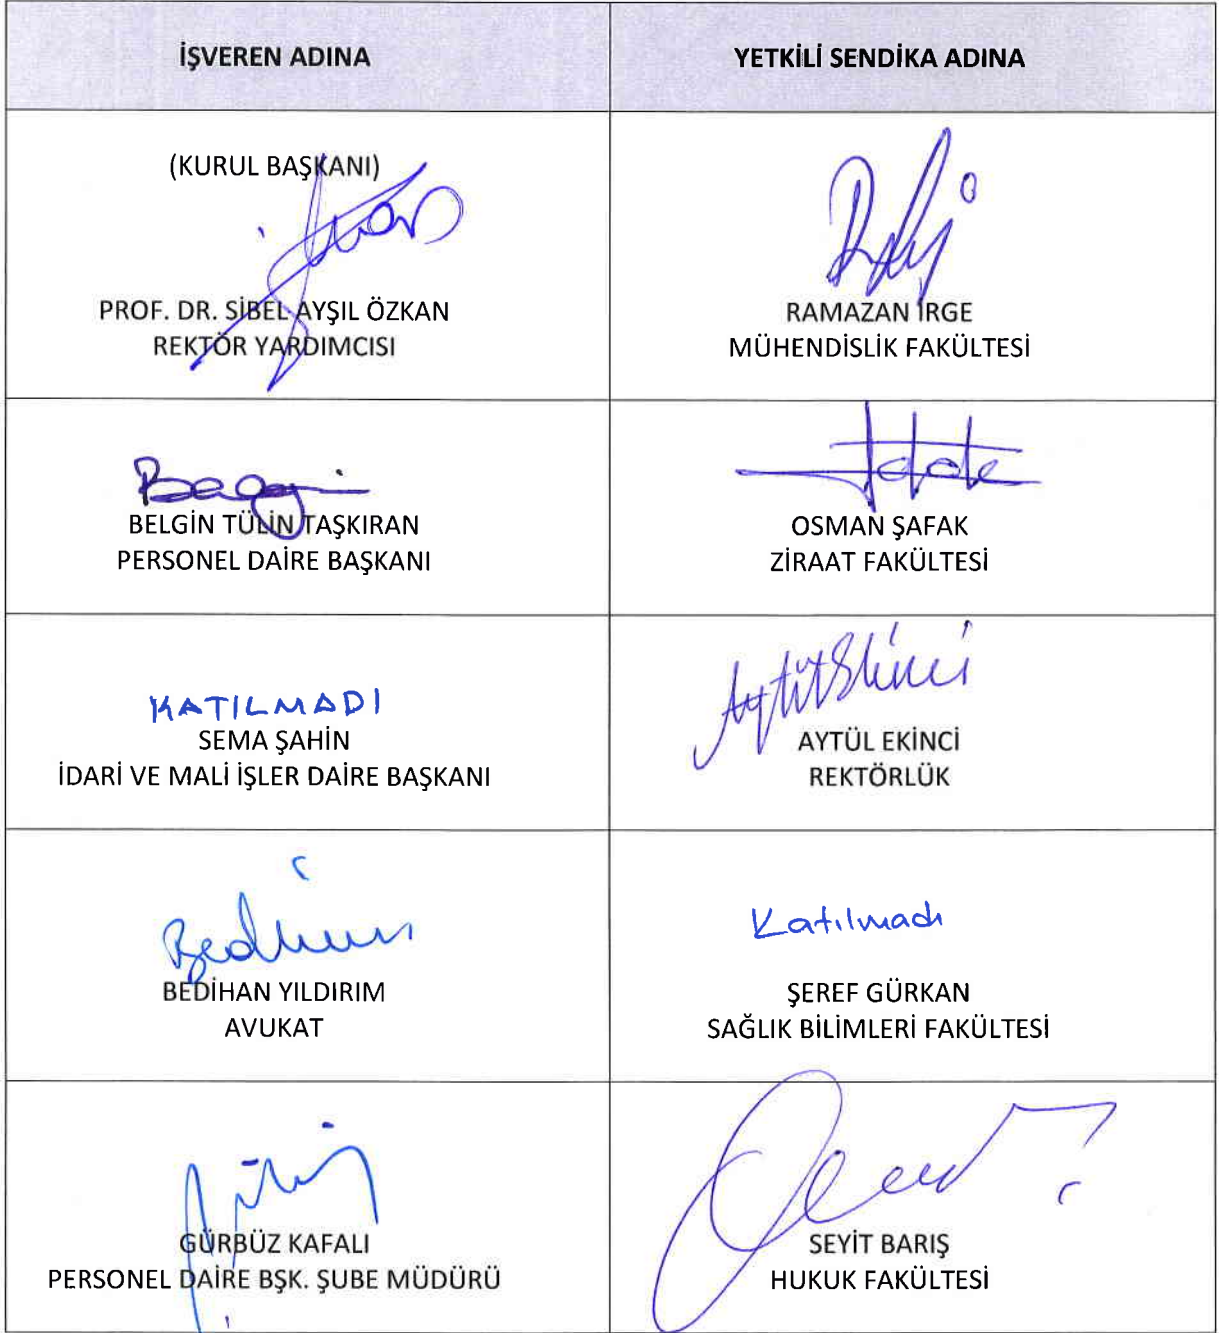 İŞVEREN ADINA
YETKİLİ SENDİKA ADINA
(KURUL BAŞKANI)
PROF. DR. SİBEL AYŞIL ÖZKAN
REKTÖR YARDIMCISI
RAMAZAN İRGE
MÜHENDİSLİK FAKÜLTESİ
BELGİN TÜLİN TAŞKIRAN
PERSONEL DAİRE BAŞKANI
OSMAN ŞAFAK
ZİRAAT FAKÜLTESİ
KATILMADI
SEMA ŞAHİN
İDARİ VE MALİ İŞLER DAİRE BAŞKANI
AYTÜL EKİNCİ
REKTÖRLÜK
BEDİHAN YILDIRIM
AVUKAT
Katılmadı
ŞEREF GÜRKAN
SAĞLIK BİLİMLERİ FAKÜLTESİ
GÜRBÜZ KAFALI
PERSONEL DAİRE BŞK. ŞUBE MÜDÜRÜ
SEYİT BARIŞ
HUKUK FAKÜLTESİ